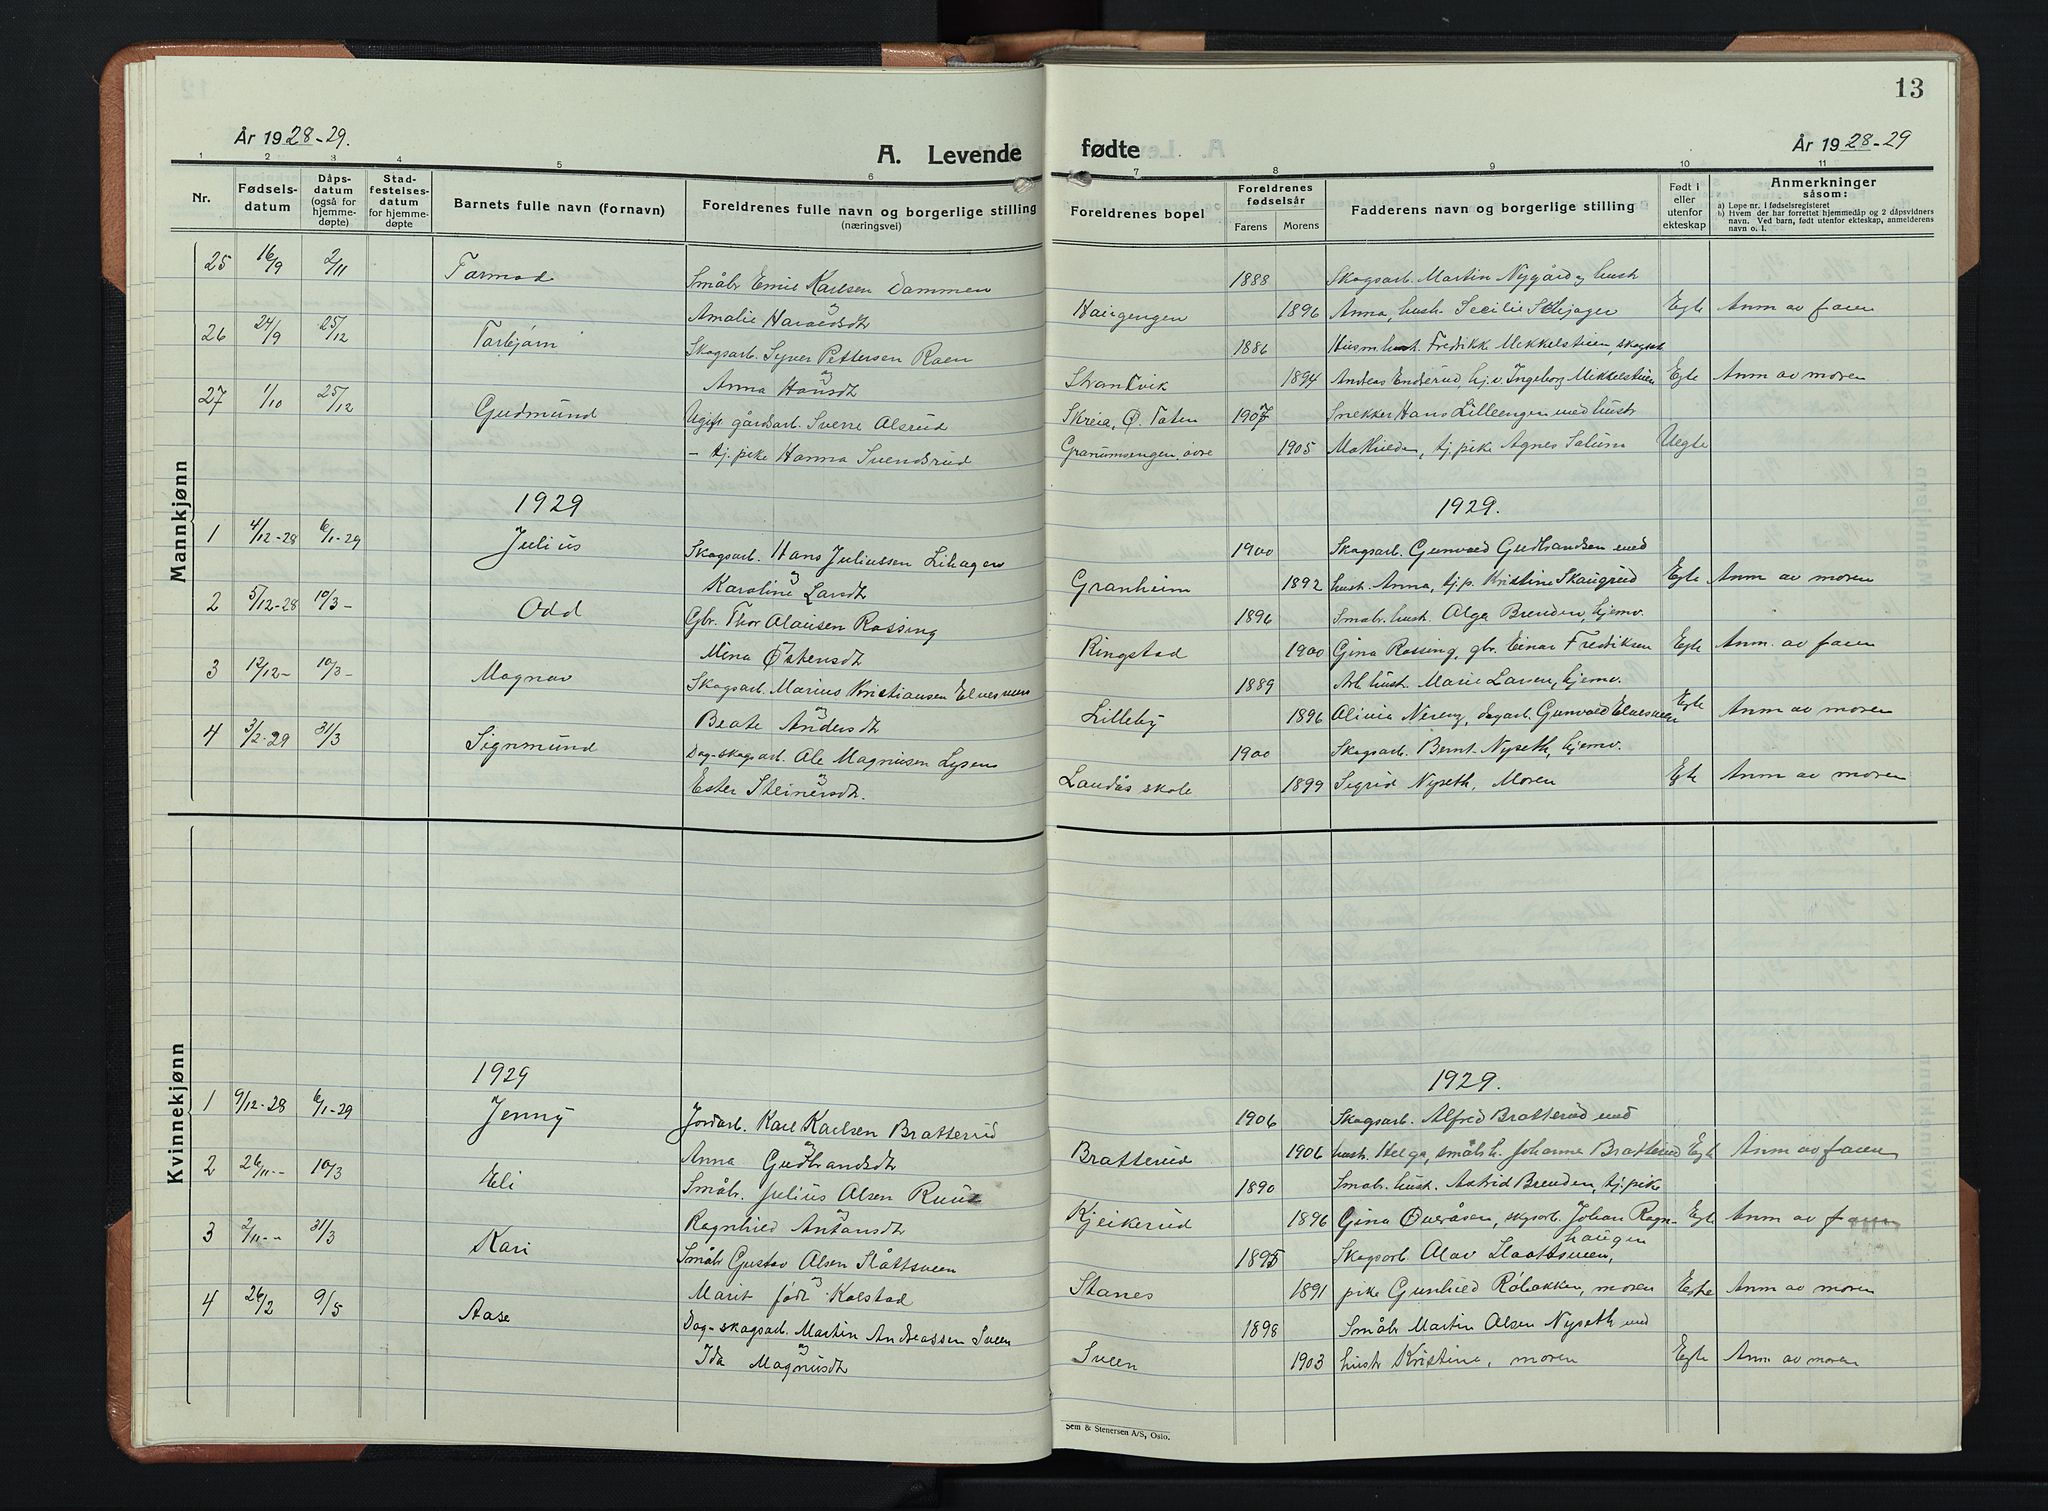 13
År 1928-29.
A. Levende fødte
År 1928-29
1 2 3 4 5 6 7 8 9 10 11
Nr. Fødselsdatum Dåpsdatum (også for hjemmedøpte) Stadfestelsesdatum for hjemmedøpte Barnets fulle navn (fornavn) Foreldrenes fulle navn og borgerlige stilling (næringsvei) Foreldrenes bopel Foreldrenes fødselsår Farens Morens Fadderens navn og borgerlige stilling Født i eller utenfor ekteskap Anmerkninger såsom:
a) Løpe nr. i fødselsregisteret
b) Hvem der har forrettet hjemmedåp og 2 dåpsvidners navn. Ved barn, født utenfor ekteskap, anmelderens navn o. l.
Mannkjønn
25 16/9 2/11 Tormod Småbr Emil Karlsen Dammen 1888 Skogsarb. Martin Nygård og hust
og
Amalie Haraldsdt Haugengen 1896 Anna, hust. Secilie Skjager Egte Anm av faren
26 24/9 25/12 Torbjørn Skogsarb. Syver Pettersen Roen 1886 Husm.hust. Fredrikke Mikkelstuen, skogsat
og
Anna Hansdt Strandvik 1894 Andreas Enderud hj.v. Ingeborg Mikkelstuen Egte Anm av moren
27 1/10 25/12 Gudmund Ugift gårdsarb. Sverre Alsrud Skreia, Ø. Toten 1907 Snekker Hans Lilleengen med hust
- tj. pike Hanna Svendsrud Granumsengen, øvre 1905 Mathilde, tj. pike Agnes Solum Uegte
1929 1929.
1 4/12-28 6/1-29 Julius Skogsarb. Hans Juliussen Lihagen 1900 Skogsarb. Gunvald Gudbrandsen med
og
Karoline Larsdt Granheim 1892 hust. Anna, tj.p. Kristine Skaugrud Egte Anm av moren
2 5/12-28 10/3- Odd Gbr. Thor Olausen Rossing 1896 Småbr. hust. Olga Brenden, hjemv.
Mina Østensdt Ringstad 1900 Gina Rossing, gbr. Einar Fredriksen Egte Anm. av faren
3 12/12- 10/3- Magnar Skogsarb. Marius Kristiansen Elvesveen 1889 Arb. hust. Marie Larsen, hjemv.
og
Beate Andersdt Lilleby 1896 Olivia Nereng, dagarb. Gunvald Elvesveen Egte Anm av moren
4 3/2-29 31/3 Sigmund Dag-skogsarb. Ole Magnusen Lysen 1900 Skogsarb. Bernt Nyseth, hjemv.
og
Ester Steinersdt. Landås skole 1899 Sigrid Nyseth, Moren Egte Anm av moren
Kvinnekjønn
1929 1929.
1 9/12-28 6/1-29 Jenny Jordarb. Karl Karlsen Bratterud 1906 Skogsarb. Alfred Bratterud med
og
Anna Gudbrandsdt Bratterud 1906 hust. Helga, småb.h. Johanne Bratterud Egte Anm av faren
2 26/11-- 10/3 Eli Småbr. Julius Olsen Ruud 1890 Småbr. hust. Astrid Brenden, tj. pike
og
Ragnhild Antonsdt Kjeikerud 1896 Gina Overåsen, skgsarb. Johan Rognhaugen Egte Anm av faren
3 2/11-- 31/3 Kari Småbr Gustav Olsen Slåttsveen 1895 Skogsarb. Olav Slaattsveen,
og
Marit født Kolstad Stanes 1891 pike Gunhild Røbakken, moren Egte Anm av moren
4 26/2 9/5 Aase Dag-skogsarb. Martin Andreassen Sveen 1898 Småbr Martin Olsen Nyseth med
og
Ida Magnusdt Sveen 1903 hust Kristine, moren Egte Anm av moren
Sem & Stenersen A/S, Oslo.